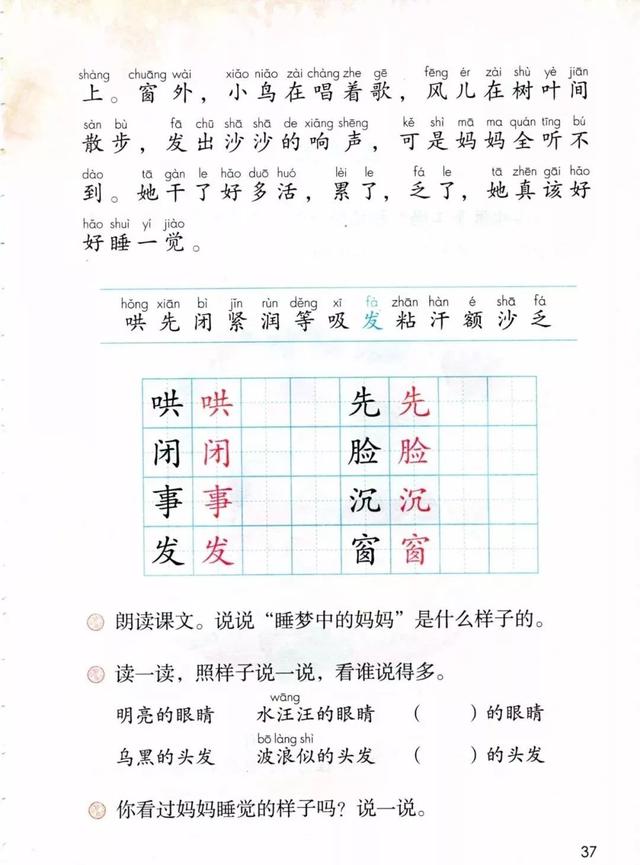 shàng chuāng wài xiǎo niǎo zài chàng zhe gē fēng ér zài shù yè jiān
上。窗外，小鸟在唱着歌，风儿在树叶间
sàn bù fā chū shā shā de xiǎng shēng kě shì mā ma quán tīng bú
散步，发出沙沙的响声，可是妈妈全听不
dào tā gàn le hǎo duō huó lèi le fá le tā zhēn gāi hǎo
到。她干了好多活，累了，乏了，她真该好
hǎo shuì yí jiào
好睡一觉。
hǒng xiān bì jǐn rùn děng xī fà zhān hàn é shā fá
哄先闭紧润等吸发粘汗额沙乏
哄哄 先先
闭闭 脸脸
事事 沉沉
发发 窗窗
朗读课文。说说“睡梦中的妈妈”是什么样子的。
读一读，照样子说一说，看谁说得多。
wāng
明亮的眼睛 水汪汪的眼睛 （ ）的眼睛
bō làng shì
乌黑的头发 波浪似的头发 （ ）的头发
你看过妈妈睡觉的样子吗？说一说。
37